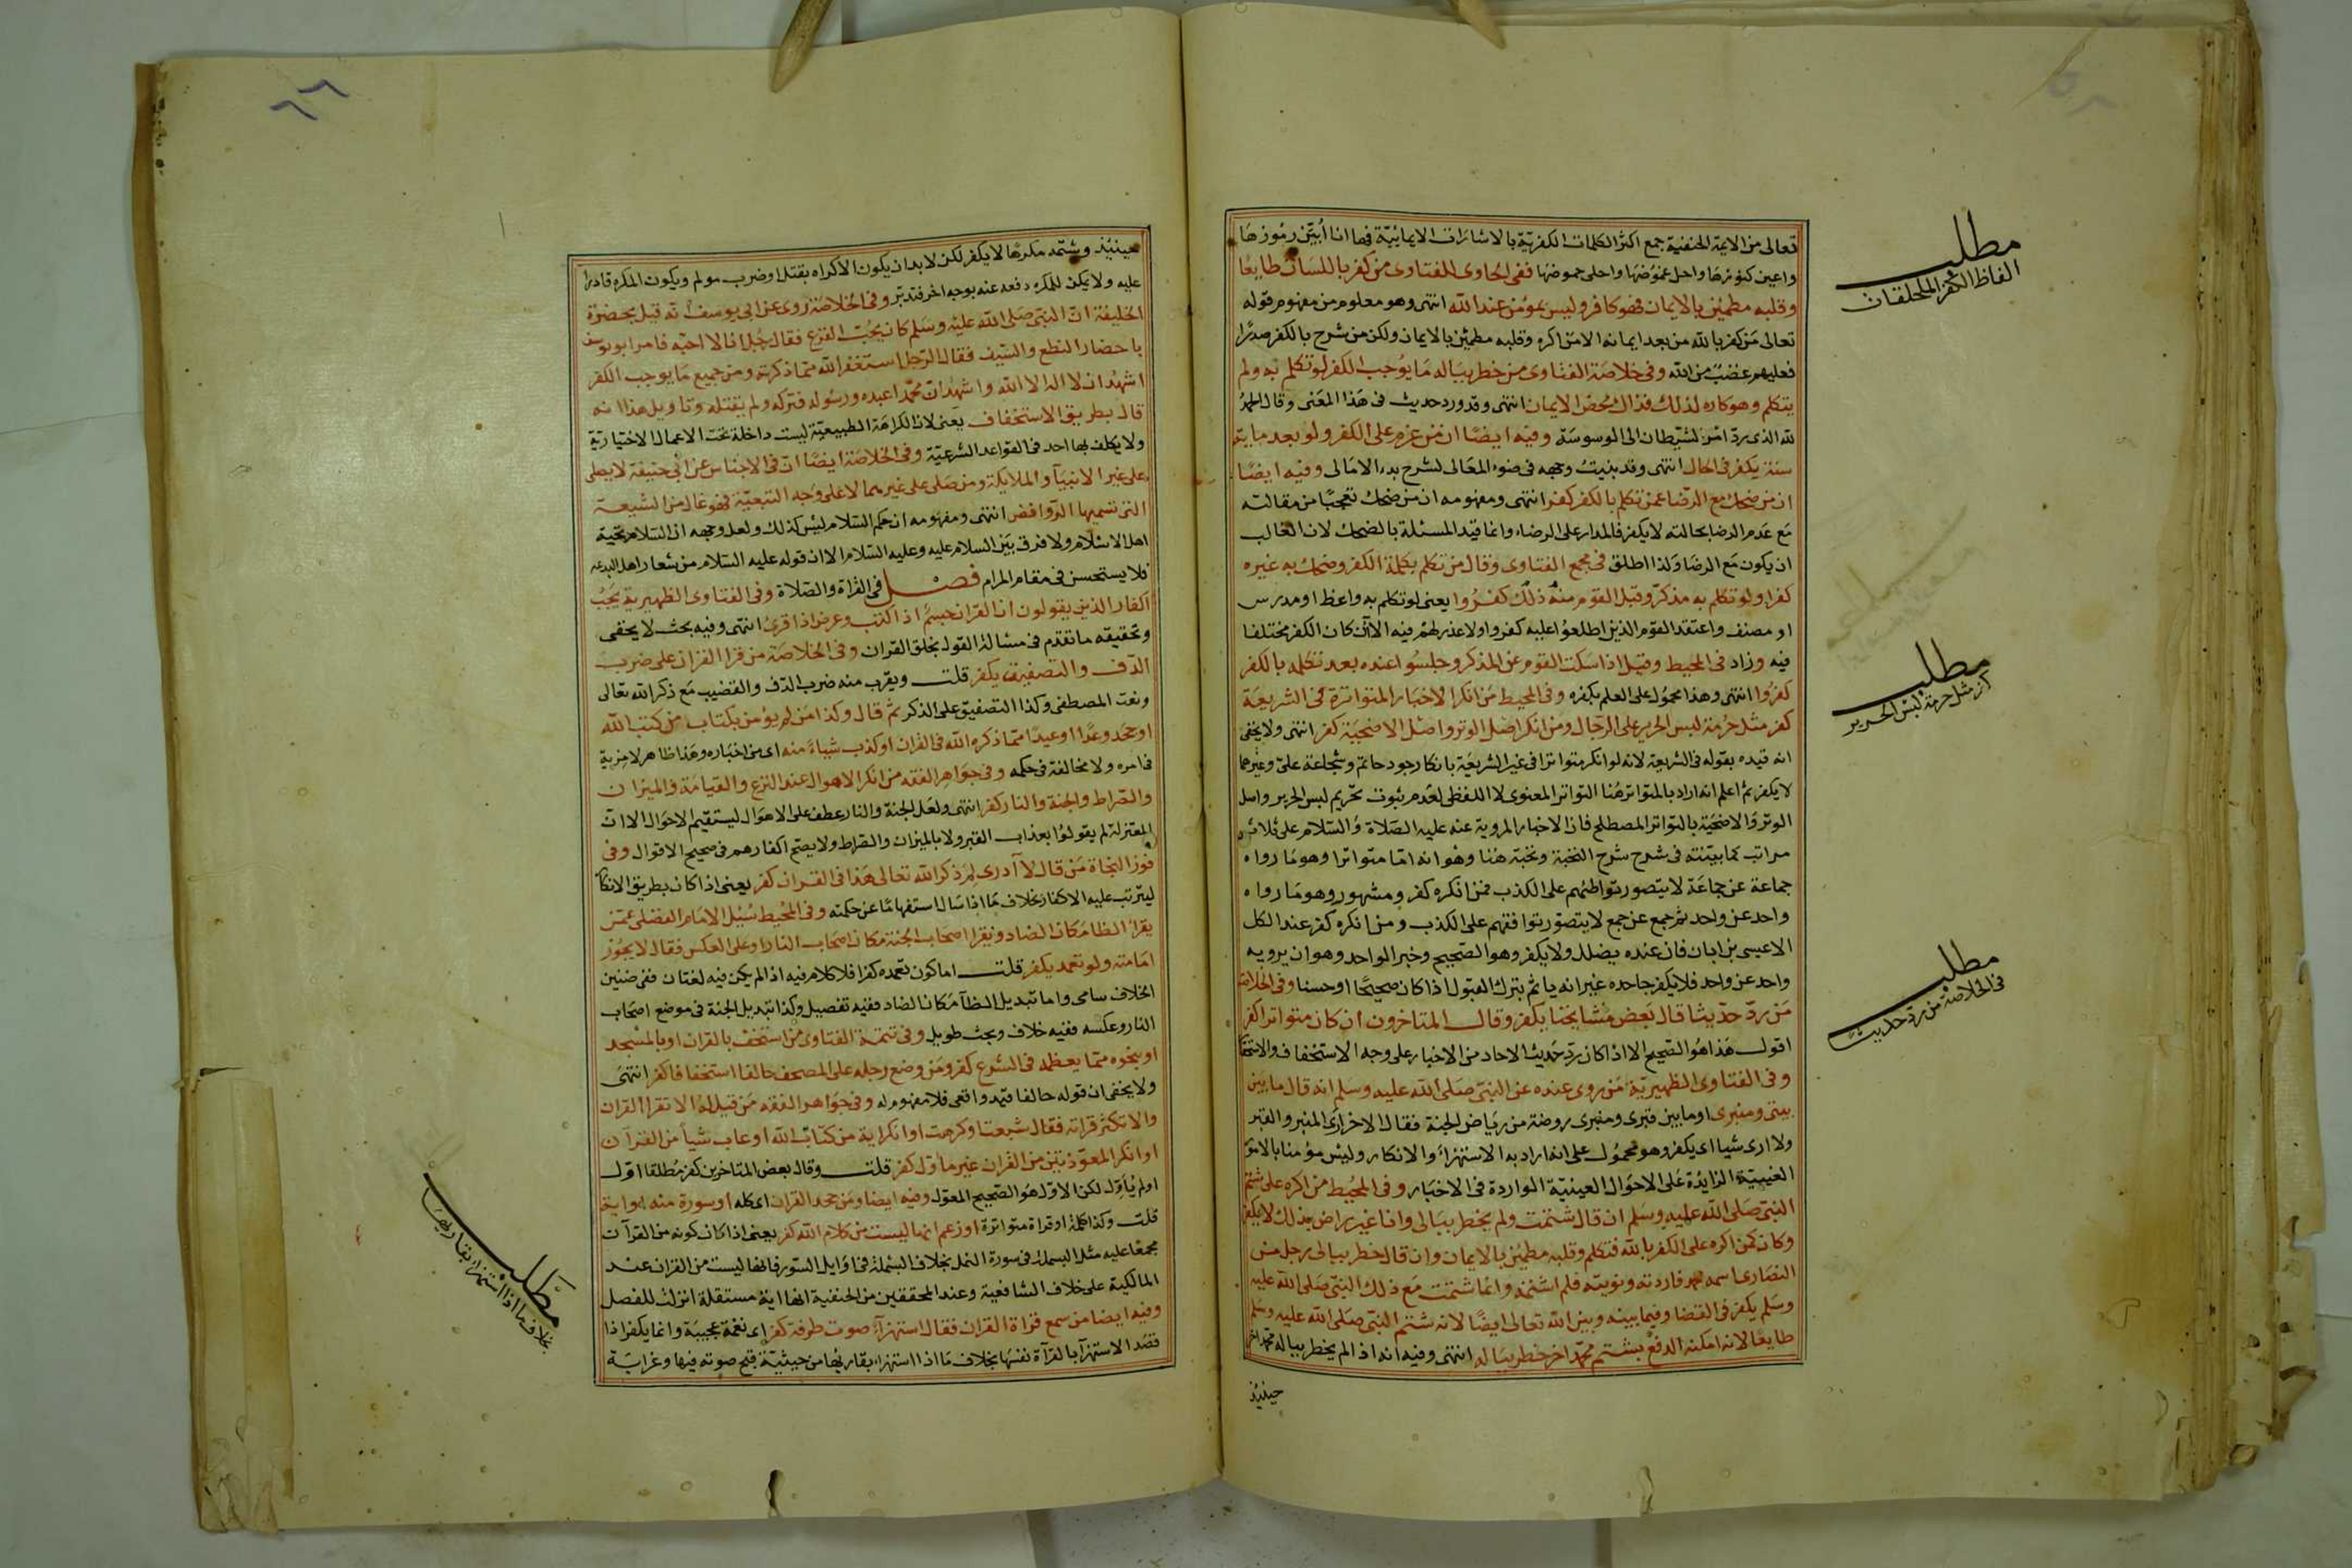 تعالى من الايمة الحنفية جمع اكثر الكلمات الكفرية بالاشارات الايمائية فها انا ابين رموزها
واعين كنوزها واحل غموضها واحلى حموضها ففى الحاوى للفتاوى من كفر باللسان طايعا
وقلبه مطمئن بالايمان فهو كافر وليس بمؤمن عند الله انتهى وهو معلوم من مفهوم قوله
تعالى من كفر بالله من بعد ايمانه الا من اكره وقلبه مطمئن بالايمان ولكن من شرح بالكفر صدرا
فعليهم غضب من الله وفى خلاصة الفتاوى من خطر بباله ما يوجب الكفر لو تكلم به ولم
يتكلم وهو كاره لذلك فذاك محض الايمان انتهى وقد ورد حديث فى هذا المعنى وقال الحمد
لله الذى رد امر الشيطان الى الوسوسة وفيه ايضا ان من عزم على الكفر ولو بعد ماية
سنة يكفر فى الحال انتهى وقد بنيت وجهه فى ضوء المعالى لشرح بدء الامالى وفيه ايضا
ان من ضحك مع الرضا عمن تكلم بالكفر كفر انتهى ومفهومه ان من ضحك تعجبا من مقالته
مع عدم الرضا بحالته لا يكفر فالمدار على الرضاء وانما قيد المسئلة بالضحك لان الغالب
ان يكون مع الرضا ولذا اطلق فى مجمع الفتاوى وقال من تكلم بكلمة الكفر وضحك به غيره
كفرا ولو تكلم به مذكر وقبل القوم منه ذلك كفروا يعنى لو تكلم به واعظ او مدرس
او مصنف واعتقد القوم الذين اطلعوا عليه كفروا ولا عذر لهم فيه الا ان كان الكفر مختلفا
فيه وزاد فى المحيط وقيل اذا سكت القوم عن المذكر وجلسوا عنده بعد تكلمه بالكفر
كفروا انتهى وهذا محمول على العلم بكفره وفى المحيط من انكر الاخبار المتواترة فى الشريعة
كفر مثل حرمة لبس الحرير على الرجال ومن انكر اصل الوتر واصل الاضحية كفر انتهى ولا يخفى
انه قيده بقوله فى الشريعة لانه لو انكر متواترا فى غير الشريعة بانكار جود حاتم وشجاعة على وغيرهما
لا يكفر ثم اعلم انه اراد بالمتواتر هنا التواتر المعنوى لا اللفظى لعدم ثبوت تحريم لبس الحرير واصل
الوتر والاضحية بالتواتر المصطلح فان الاخبار المروية عنه عليه الصلاة والسلام على ثلاث
مراتب كما بينته فى شرح شرح النخبة ونخبته هنا وهو انه اما متواترا وهو ما رواه
جماعة عن جماعة لا يتصور تواطئهم على الكذب فمن انكره كفر ومشهور وهو ما رواه
واحد عن واحد ثم جمع عن جمع لا يتصور توافقهم على الكذب ومن انكره كفر عند الكل
الا عيسى بن ابان فان عنده يضلل ولا يكفر وهو الصحيح وخبر الواحد وهو ان يرويه
واحد عن واحد فلا يكفر جاحده غير انه ياثم بترك القبول اذا كان صحيحا او حسنا وفى الخلاصة
من رد حديثا قال بعض مشايخنا يكفر وقال المتاخرون ان كان متواترا كفر
اقول هذا هو الصحيح الا اذا كان رد حديث الاحاد من الاخبار على وجه الاستخفاف والاستحقا
وفى الفتاوى الظهيرية من روى عنده عن النبى صلى الله عليه وسلم انه قال ما بين
بيتى ومنبرى او ما بين قبرى ومنبرى روضة من رياض الجنة فقال الاخر ارى المنبر والقبر
ولا ارى شيا اى يكفر وهو محمول على انه اراد به الاستهزاء والانكار وليس مؤمنا بالامور
الغيبية الزايدة على الاحوال العينية الواردة فى الاخبار وفى المحيط من اكره على شتم
النبى صلى الله عليه وسلم ان قال شتمت ولم يخطر ببالى وانا غير راض بذلك لا يكفر
وكان كمن اكره على الكفر بالله فتكلم وقلبه مطمئن بالايمان وان قال خطر ببالى رجل من
النصارى اسمه محمد فاردته ونويته فلم اشتمه وانما شتمت مع ذلك النبى صلى الله عليه
وسلم يكفر فى القضا وفيما بينه وبين الله تعالى ايضا لانه شتم النبى صلى الله عليه وسلم
طايعا لانه امكنه الدفع بشتم محمد اخر خطر بباله انتهى وفيه انه اذا لم يخطر بباله محمد اخر
حينئذ
مطلب
الفاظ الكفر
مطلب
كفر مثل حرمة لبس الحرير
مطلب
فى الخلاصة من رد حديث
٦٦
حينئذ وشتمه مكرها لا يكفر لكن لا بد ان يكون الاكراه بقتل او ضرب مولم ويكون المكره قادرا
عليه ولا يمكن للمكره دفعه عنه بوجه اخر فتدبر وفى الخلاصة روى عن ابى يوسف انه قيل بحضرة
الخليفة ان النبى صلى الله عليه وسلم كان يحب القرع فقال رجل انا لا احبه فامر ابو يوسف
باحضار النطع والسيف فقال الرجل استغفر الله مما ذكرته ومن جميع ما يوجب الكفر
اشهد ان لا اله الا الله واشهد ان محمدا عبده ورسوله فتركه ولم يقتله وتاويل هذا انه
قال بطريق الاستخفاف يعنى لان الكراهة الطبيعية ليست داخلة تحت الاعمال الاختيارية
ولا يكلف بها احد فى القواعد الشرعية وفى الخلاصة ايضا ان فى الاجناس عن ابى حنيفة لا يصلى
على غير الانبيآ والملايكة ومن صلى على غيرهما لا على وجه التبعية فهو غال من الشيعة
التى نسميها الروافض انتهى ومفهومه ان حكم السلام ليس كذلك ولعل وجهه ان السلام تحية
اهل الاسلام ولا فرق بين السلام عليه وعليه السلام الا ان قوله عليه السلام من شعار اهل البدعه
فلا يستحسن فى مقام المرام فصل فى القراة والصلاة وفى الفتاوى الظهيرية يجب
اكفار الذين يقولون ان القران جسم اذا كتب وعرض اذا قرئ انتهى وفيه بحث لا يخفى
وتحقيقه ما تقدم فى مسالة القول بخلق القران وفى الخلاصة من قرا القران على ضرب
الدف والتصفيق يكفر قلت ويقرب منه ضرب الدف والقضيب مع ذكر الله تعالى
ونعت المصطفى وكذا التصفيق على الذكر ثم قال وكذا من لم يؤمن بكتاب من كتب الله
او جحد وعدا او وعيدا مما ذكره الله فى القران او كذب شياء منه اى من اخباره وهذا ظاهر لا مرية
فى امره ولا مخالفة فى حكمه وفى جواهر الفقه من انكر الاهوال عند النزع والقيامة والميزان
والصراط والجنة والنار كفر انتهى ولعل الجنة والنار عطف على الاهوال ليستقيم الاحوال الا ان
المعتزلة لم يقولوا بعذاب القبر ولا بالميزان والصراط ولا يصح اكفارهم فى صحيح الاقوال وفى
فوز النجاة من قال لا ادرى لم ذكر الله تعالى هذا فى القران كفر يعنى اذا كان بطريق الانكار
ليترتب عليه الاكفار بخلاف ما اذا سال استفهاما عن حكمته وفى المحيط سئل الامام الفضلى عمن
يقرا الظا مكان الضاد ويقرا اصحاب الجنة مكان اصحاب النار او على العكس فقال لا يجوز
امامته ولو تعمد يكفر قلت اما كون تعمده كفرا فلا كلام فيه اذا لم يكن فيه لغتان ففى ضنين
الخلاف سامى واما تبديل الظا مكان الضاد ففيه تفصيل وكذا تبديل الجنة فى موضع اصحاب
النار وعكسه ففيه خلاف وبحث طويل وفى تتمة الفتاوى من استخف بالقران او بالمسجد
او بنحوه مما يعظم فى الشرع كفر ومن وضع رجله على المصحف حالفا استخفافا كفر انتهى
ولا يخفى ان قوله حالفا قيد واقعى فلا مفهوم له وفى جواهر الفقه من قيل له الا تقرا القران
والا تكثر قراته فقال شبعت او كرهت او انكر اية من كتاب الله او عاب شيأ من القرآن
او انكر المعوذتين من القران غير ماول كفر قلت وقال بعض المتاخرين كفر مطلقا اول
او لم ياول لكن الاول هو الصحيح المعول وفيه ايضا ومن جحد القران اى كله او سورة منه او اية
قلت وكذا كلمة او قراة متواترة او زعم انها ليست من كلام الله كفر يعنى اذا كان كونه من القرآن
مجمعا عليه مثل البسملة فى سورة النمل بخلاف البسملة فى اوايل السور فانها ليست من القران عند
المالكية على خلاف الشافعية وعند المحققين من الحنفية انها اية مستقلة انزلت للفصل
وفيه ايضا من سمع قراة القران فقال استهزآء صوت طرفة كفر اى نغمة عجيبة وانما يكفر اذا
قصد الاستهزا بالقرآة نفسها بخلاف ما اذا استهزاء بقاريها من حيثية قبح صوته فيها وغرابة
مطلب
بخلاف ما اذا استهزاء بقاريها